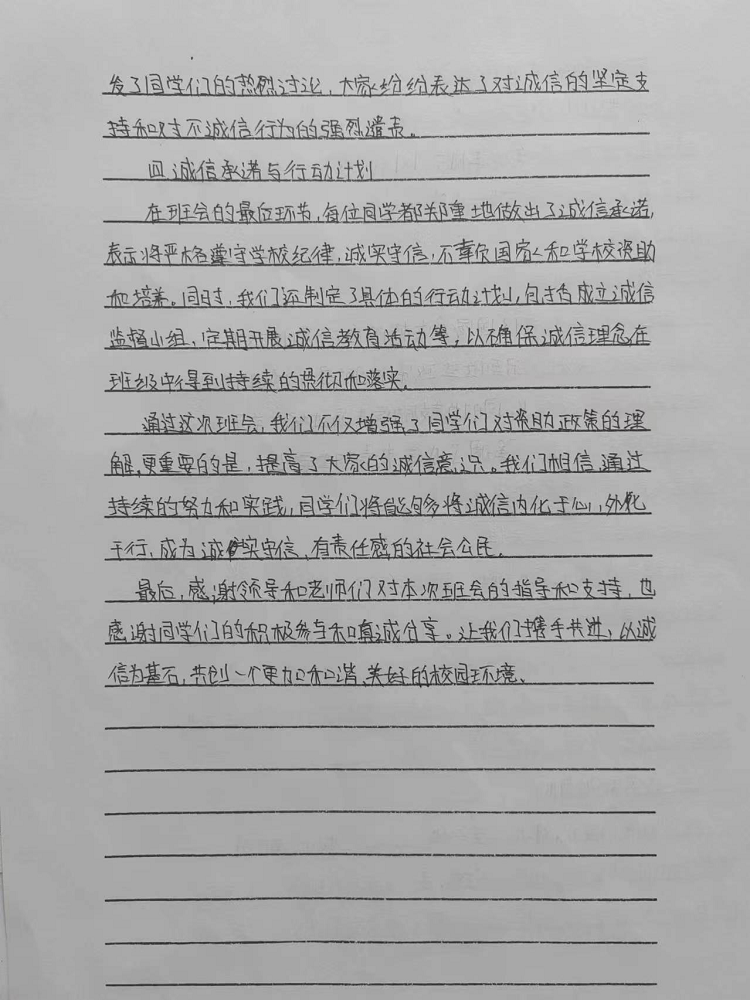 发了同学们的热烈讨论,大家纷纷表达了对诚信的坚定支
持和对不诚信行为的强烈谴责。
四 诚信承诺与行动计划
在班会的最后环节,每位同学都郑重地做出了诚信承诺,
表示将严格遵守学校纪律,诚实守信,不辜负国家和学校资助
和培养。同时,我们还制定了具体的行动计划,包括成立诚信
监督小组、定期开展诚信教育活动等,以确保诚信理念在
班级中得到持续的贯彻和落实。
通过这次班会,我们不仅增强了同学们对资助政策的理
解,更重要的是,提高了大家的诚信意识。我们相信,通过
持续的努力和实践,同学们将能够将诚信内化于心,外化
于行,成为诚实守信、有责任感的社会公民。
最后,感谢领导和老师们对本次班会的指导和支持,也
感谢同学们的积极参与和真诚分享。让我们携手共进,以诚
信为基石,共创一个更加和谐、美好的校园环境。